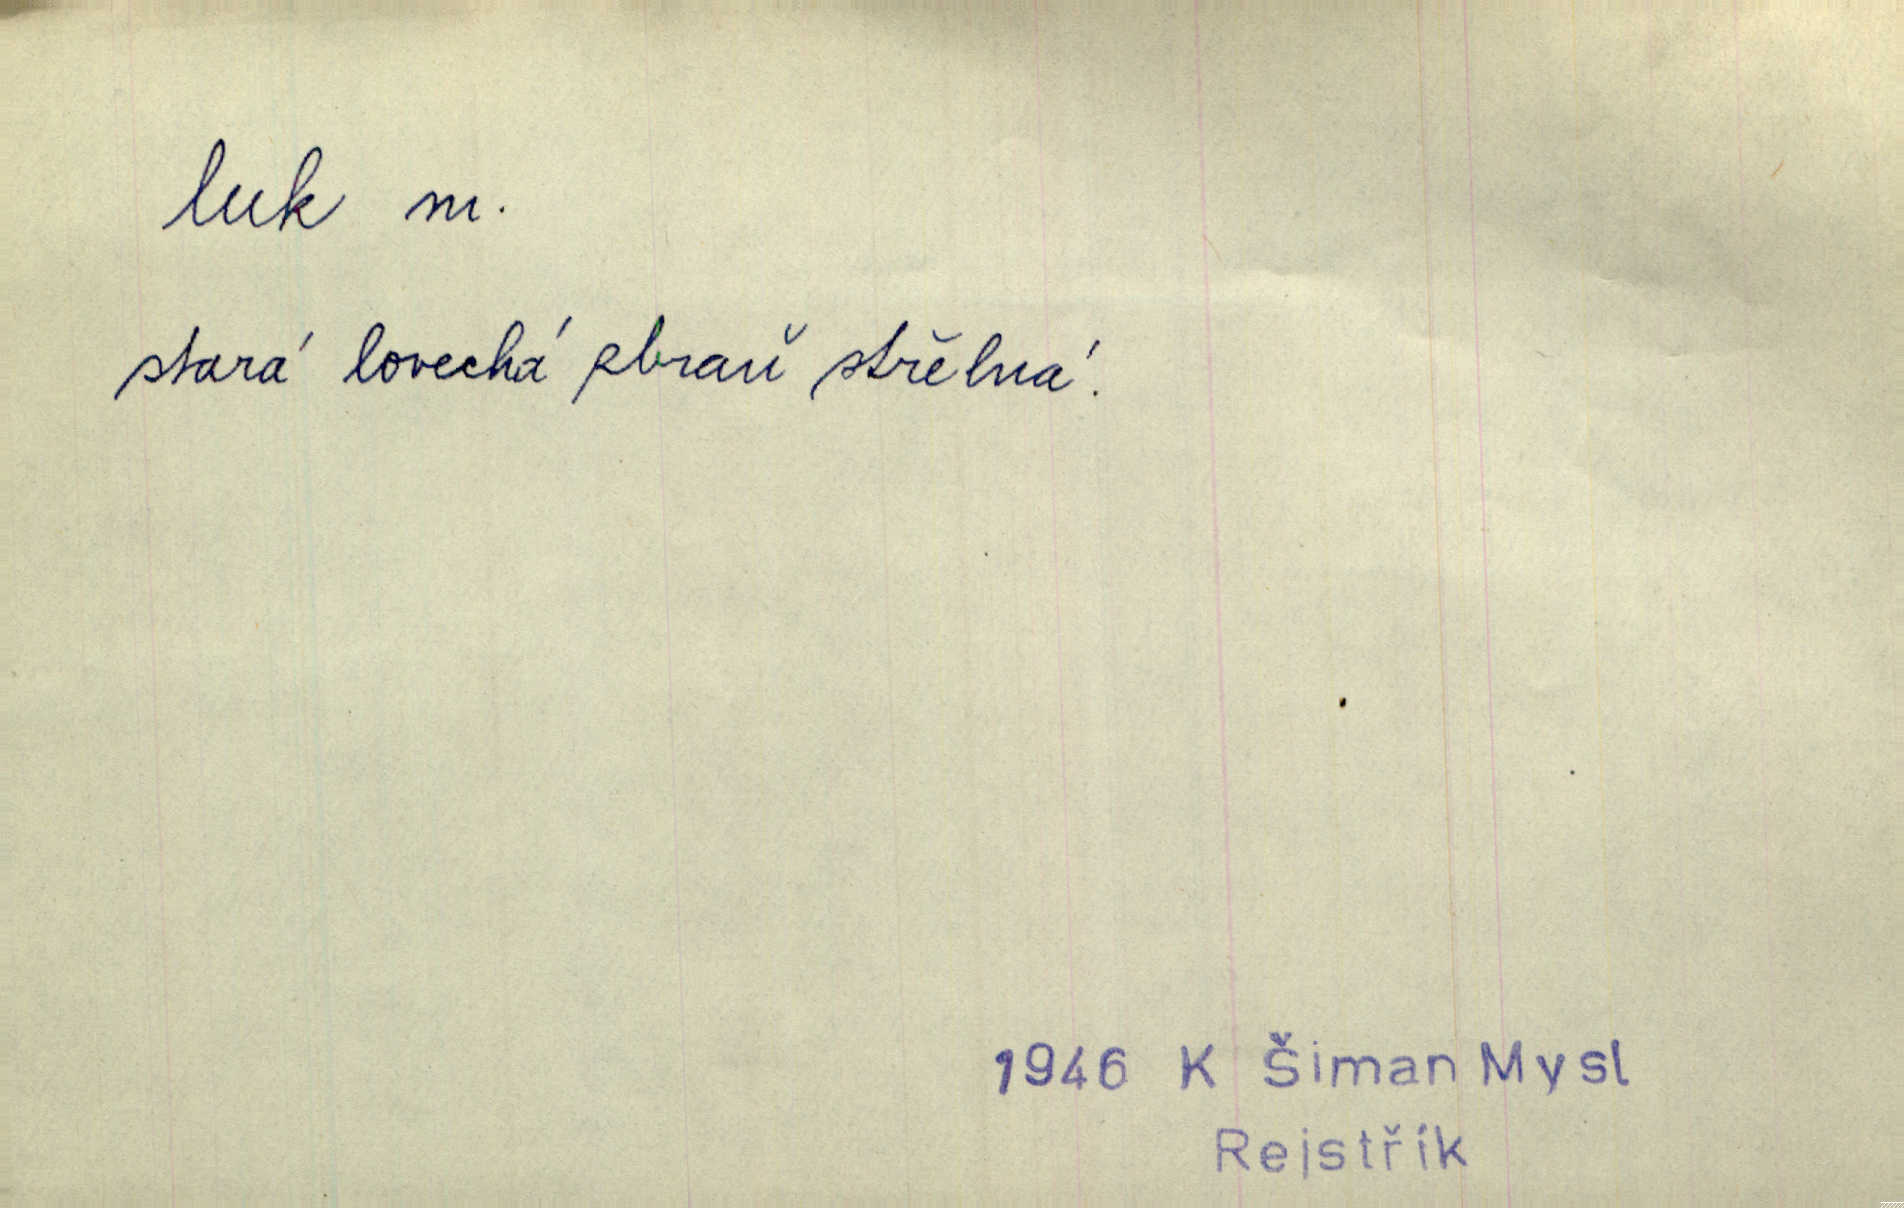 luk m.
stará lovecká zbraň střelná.
1946 K Šiman Mysl
Rejstřík